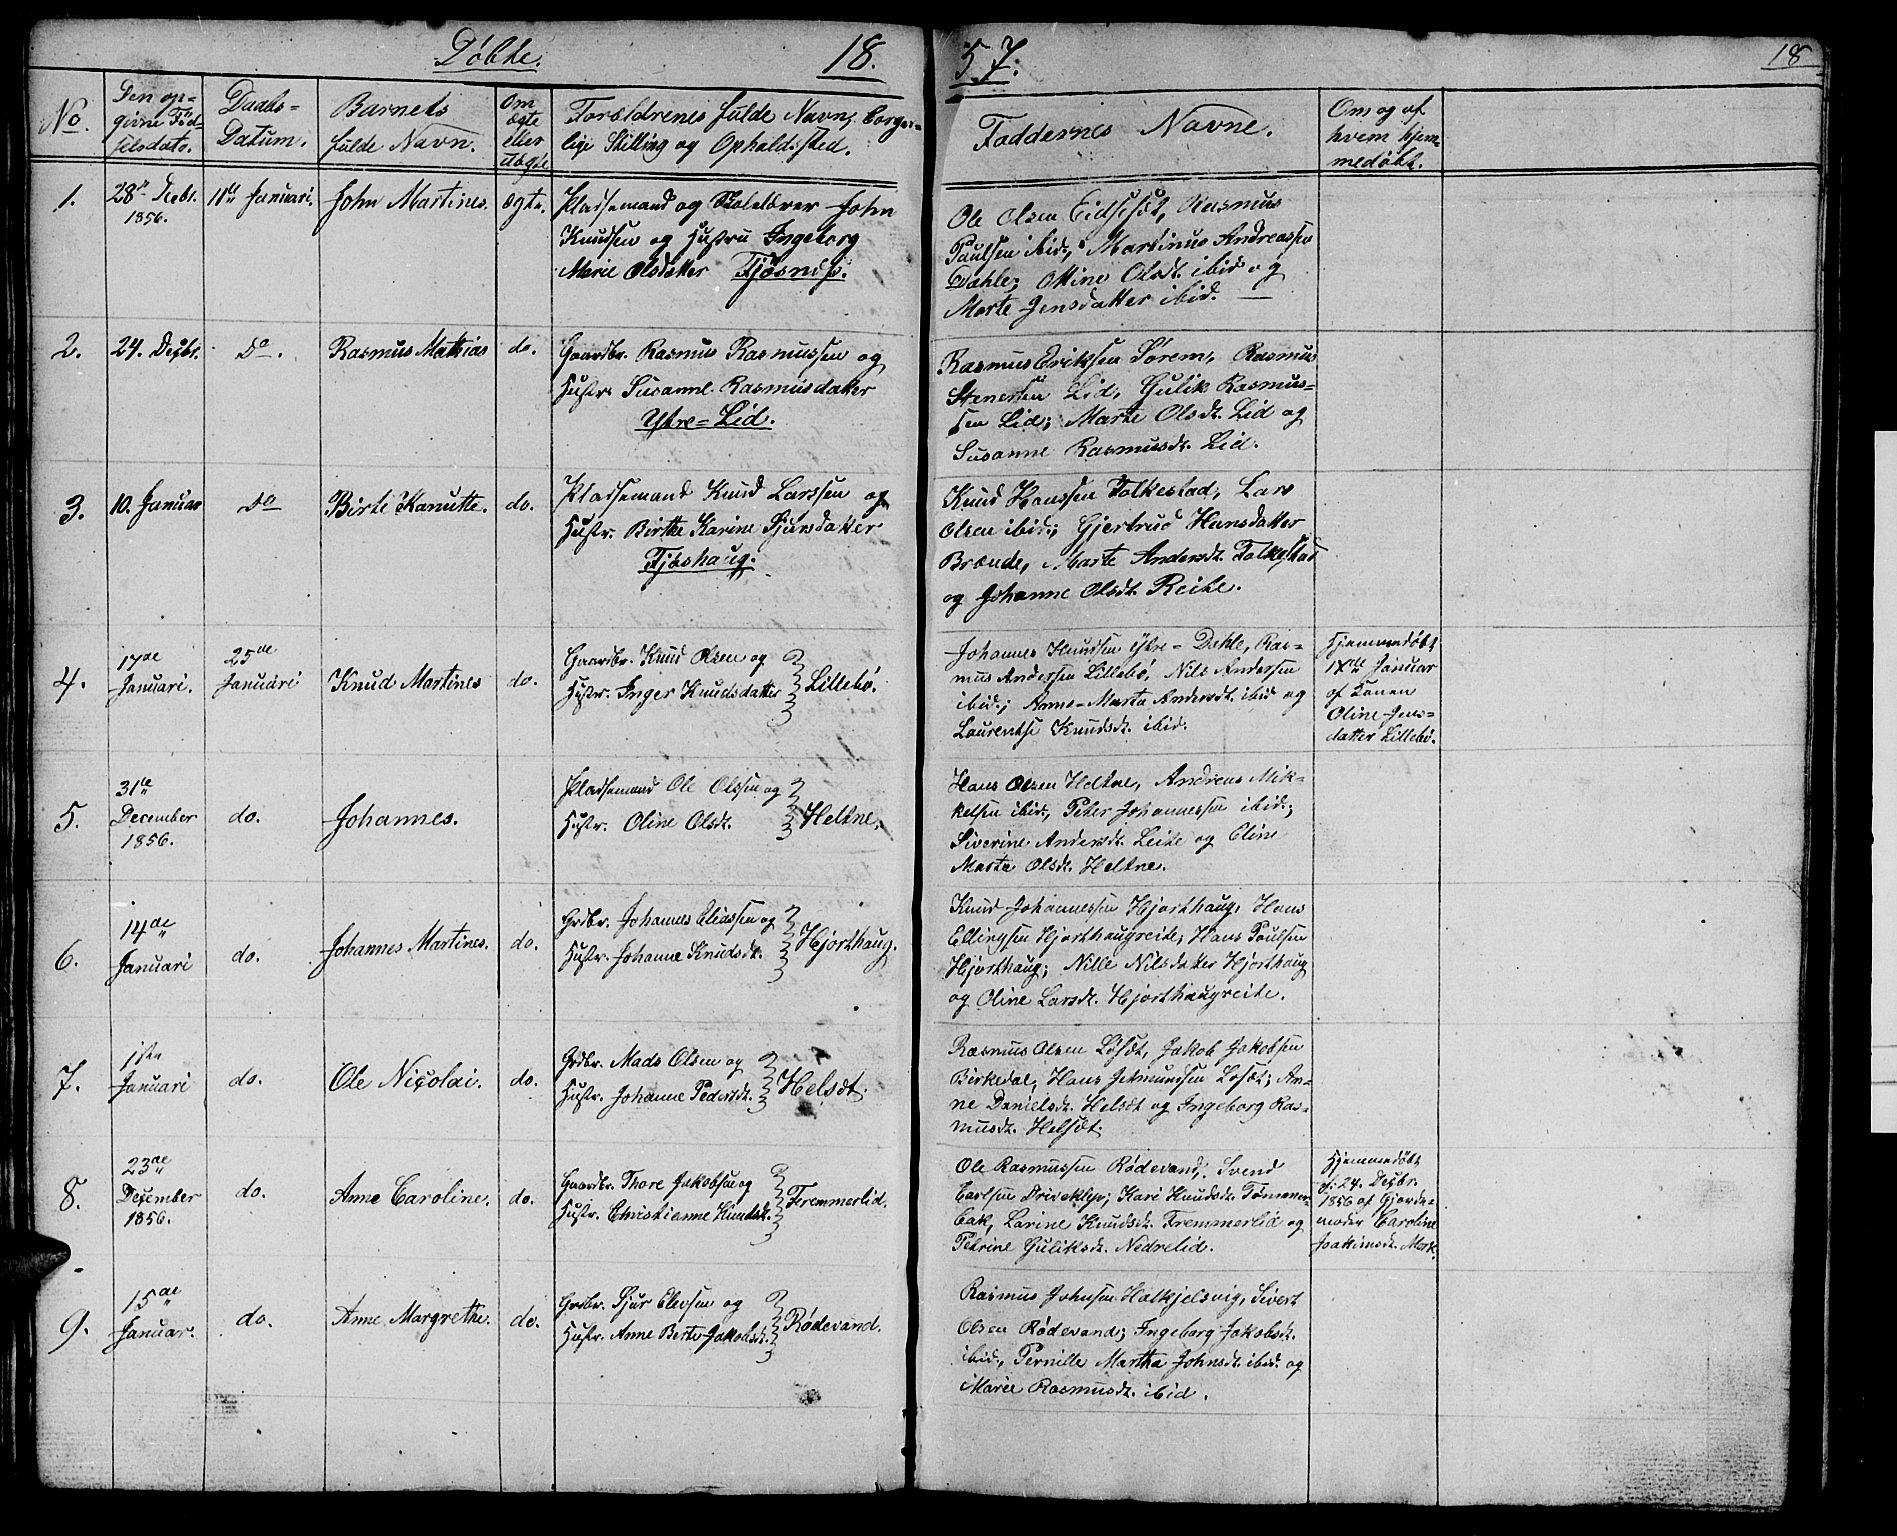 Døbte. 18.
57.
18
No.
Den op-
givne Fød-
selsdato.
Daabs-
Datum.
Barnets
fulde Navn.
Om
ægte
eller
uægte
Forældrenes fulde Navn, borger-
lige Stilling og Opholdssted.
Faddernes Navne.
Om og af
hvem hjem-
medøbt.
1.
28de Decbr.
1856.
11te Januari.
John Martines.
ægte.
Pladsemand og Skolelærer John
Knudsen og Hustru Ingeborg
Marie Olsdatter
Ole Olsen Eidsæt, Rasmus
Paulsen ibid., Martinus Andreassen
Dahle; Oline Olsdt. ibid og
Marte Jensdatter ibid.
2.
24. Decbr.
Do.
Rasmus Mathias
do.
Gaardbr. Rasmus Rasmussen og
Hustr. Susanne Rasmusdatter
Ytre-Lid.
Rasmus Eriksen Sørem, Rasmus
Stenersen Lid, Gulik Rasmus-
sen Lid; Marte Olsdt. Lid og
Susanne Rasmusdt. Lid.
3.
10. Januar
Do
Birte Kanutte.
do.
Pladsemand Knud Larssen og
Hustr. Birthe Karine Sjursdatter
Fjøshaug.
Knud Hanssen Folkestad, Lars
Olsen ibid.; Gjertrud Hansdatter
Brænde, Marte Andersdt. Folkestad
og Johanne Olsdt. Reite.
4.
17de
Januari.
25de
Januari
Knud Martines
do.
Gaardbr. Knud Olsen og
Hustr. Inger Knudsdatter
Lillebø.
Johannes Knudsen Ytre-Dahle, Ras-
mus Andersen Lillebø, Nils Andersen
ibid.; Anne-Marta Andersdt. ibid og
Laurentse Knudsdt. ibid.
Hjemmedøbt
Januar
af Konen
Oline Jens-
datter Lillebø.
5.
31te
December
1856.
do.
Johannes.
Pladsemand Ole Olssen og
Hustr. Oline Olsdt.
Heltne.
Hans Olsen Heltne, Andreas Mik-
kelsen ibid., Peter Johannessen ibid.;
Siverine Andersdt. Leite og Oline
Marta Olsdt. Heltne.
6.
14de
Januari
do.
Johannes Martines.
do.
Grdbr. Johannes Eliassen og
Hustr. Johanne Knudsdt.
Hjorthaug.
Knud Johannessen Hjorthaug, Hans
Ellingsen Hjorthaugreite; Hans Paulsen
Hjorthaug; Nille Nilsdatter Hjorthaug
og Oline Larsdt. Hjorthaugreite.
7.
1ste
Januari
do.
Ole Nicolai.
do.
Grdbr. Mads Olsen og
Hustr. Johanne Pedersdt.
Helsæt.
Rasmus Olsen Løsæt, Jakob Jakobsen
Birkedal, Hans Løsæt; An-
ne Danielsdt. Helsæt og Ingeborg Ras-
musdt. Helsæt.
8.
23de
December
1856.
do.
Anne Caroline.
do.
Gaardbr. Thore Jakobsen og
Hustr. Christianne Knudsdt.
Fremmerlid.
Ole Rasmussen Rødevand, Svend
Driveklep; Kari Knudsdt. Tømmer-
bak, Larine Knudsdt. Fremmerlid og
Petrine Guliksdt. Nedrelid.
Hjemmedøbt
24. Decbr.
1856 af Gjorde-
moder Caroline
Joakimsdt. Mork.
9.
15de
Januar.
do.
Anne Margrethe.
do.
Grdbr. Sjur Elevsen og
Hustr. Anne Berte Jakobsdt.
Rødevand.
Rasmus Johnsen Halkjelsvig, Sivert
Olsen Rødevand; Ingeborg Jakobsdt.
ibid., Pernille Martha Johnsdt. ibid. og
Marie Rasmusdt. ibid.